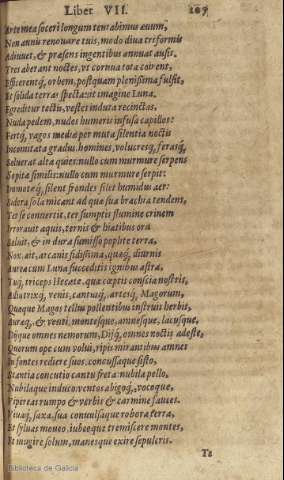 Liber VII. 109
Arte mea soceri longum tentabimus æuum,
Non annis renouare tuis, modo diua triformis
Adiuuet, & præsens ingentibus annuat ausis.
Tres aberant noctes, vt cornua tota coirent,
Efficerentq́, orbem, postquam plenissima fulsit,
Et solida terras spectauit imagine Luna.
Egreditur tectis, vestes induta recinctas,
Nuda pedem, nudos humeris infusa capillos:
Fertq́, vagos mediæ per muta silentia noctis
Incomitata gradus. homines, volucresq́, ferasq́,
Soluerat alta quies: nullo cum murmure serpens
Sopita similis: nullo cum murmure serpit:
Immotæq́, silent frondes silet humidus aer:
Sidera sola micant ad quæ sua brachia tendens,
Ter se conuertit, ter sumptis flumine crinem
Irrorauit aquis, ternis & hiatibus ora
Soluit, & in dura sumisso poplite terra,
Nox, ait, arcanis fidissima, quæq́, diurnis
Aurea cum Luna succeditis ignibus astra,
Tuq́, triceps Hecate, quæ cœptis conscia nostris,
Adiutrixq́, venis, cantusq́, artesq́, Magorum,
Quæque Magas tellus pollentibus instruis herbis,
Auræq́, & venti, montesque, amnesque, lacusque,
Dijque omnes nemorum, Dijq́, omnes noctis adeste,
Quorum ope cum volui, ripis mirantibus amnes
In fontes rediere suos, concussaque sisto,
Stantia concutio cantu freta nubila pello,
Nubilaque induco: ventos abigoq́, vocoque,
Vipereas rumpo & verbis & carmine fauces.
Viuaq́, saxa, sua conuulsaque robora terra,
Et syluas moueo, iubeoque tremiscere montes,
Et mugire solum, manesque exire sepulcris.
Te
Biblioteca de Galicia